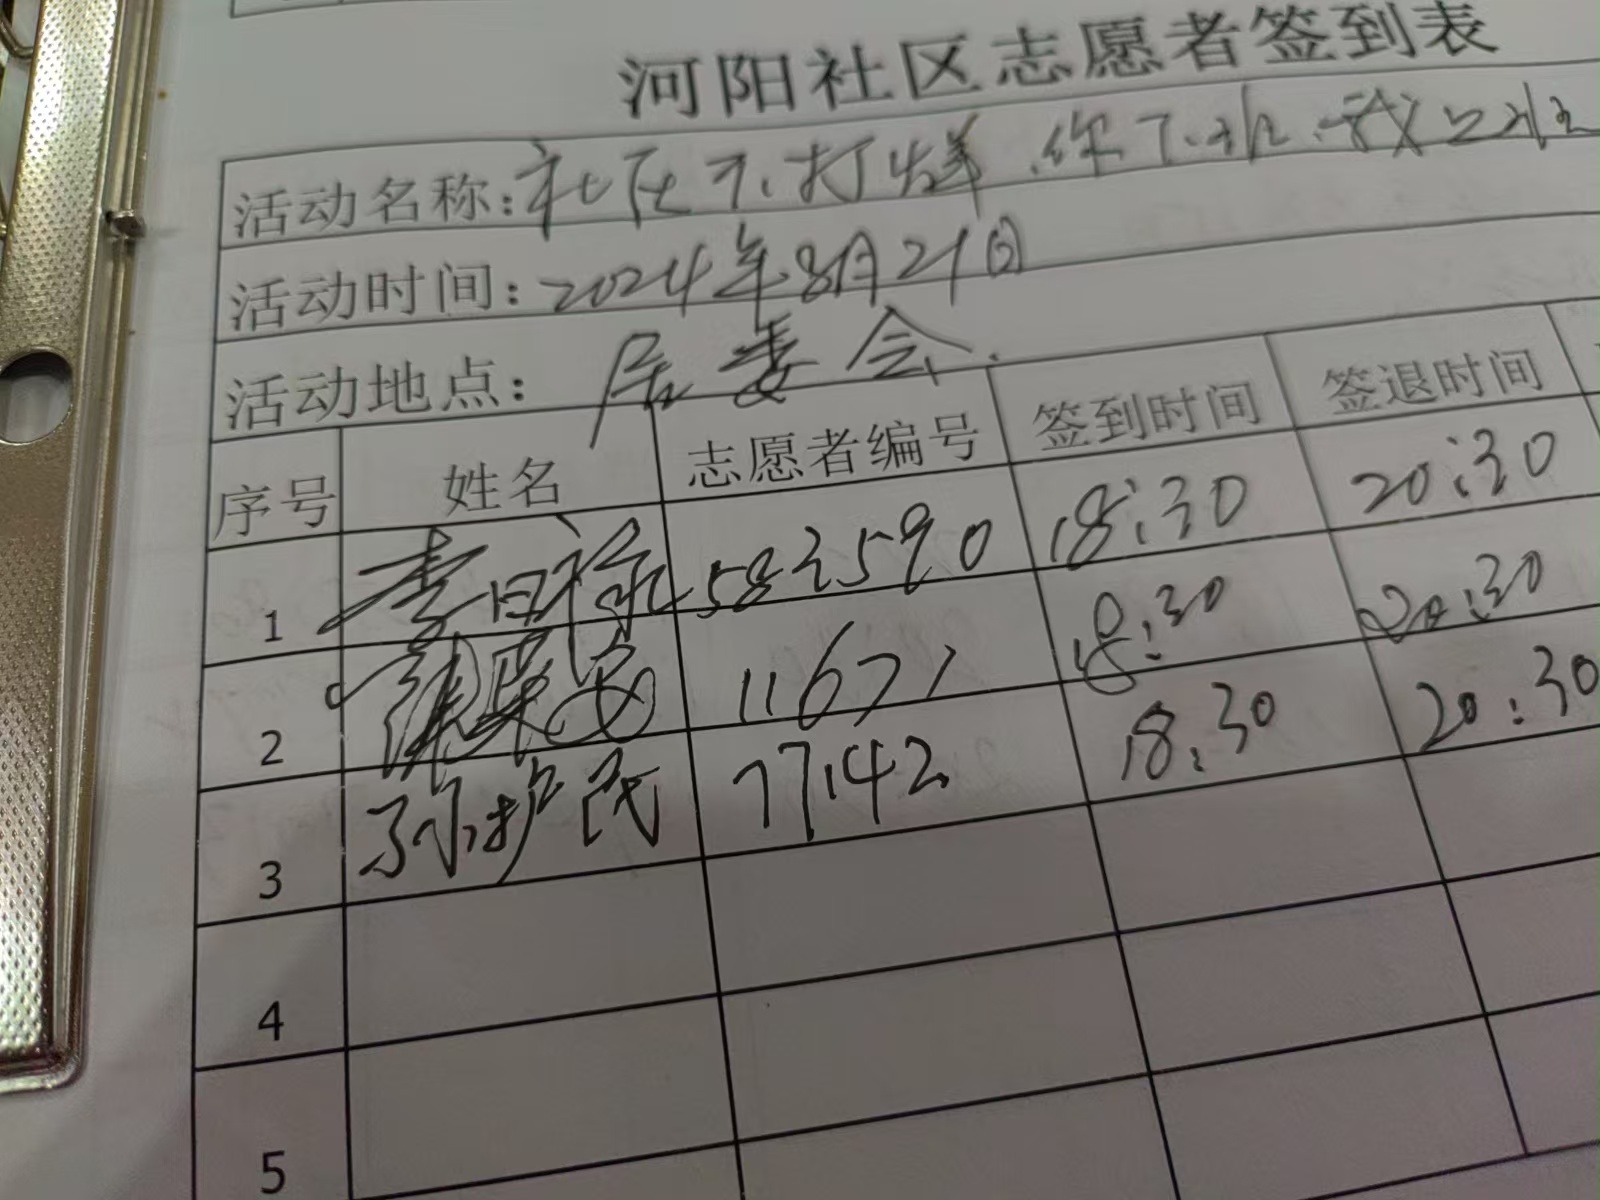 河阳社区志愿者签到表
活动名称：社区不打烊.你下班.我上班
活动时间：2024年8月21日
活动地点：居委会.
序号 姓名 志愿者编号 签到时间 签退时间
1 李日禄 583590 18:30 20:30
2 11671 18:30 20:30
3 孙护民 77142 18:30 20:30
4
5